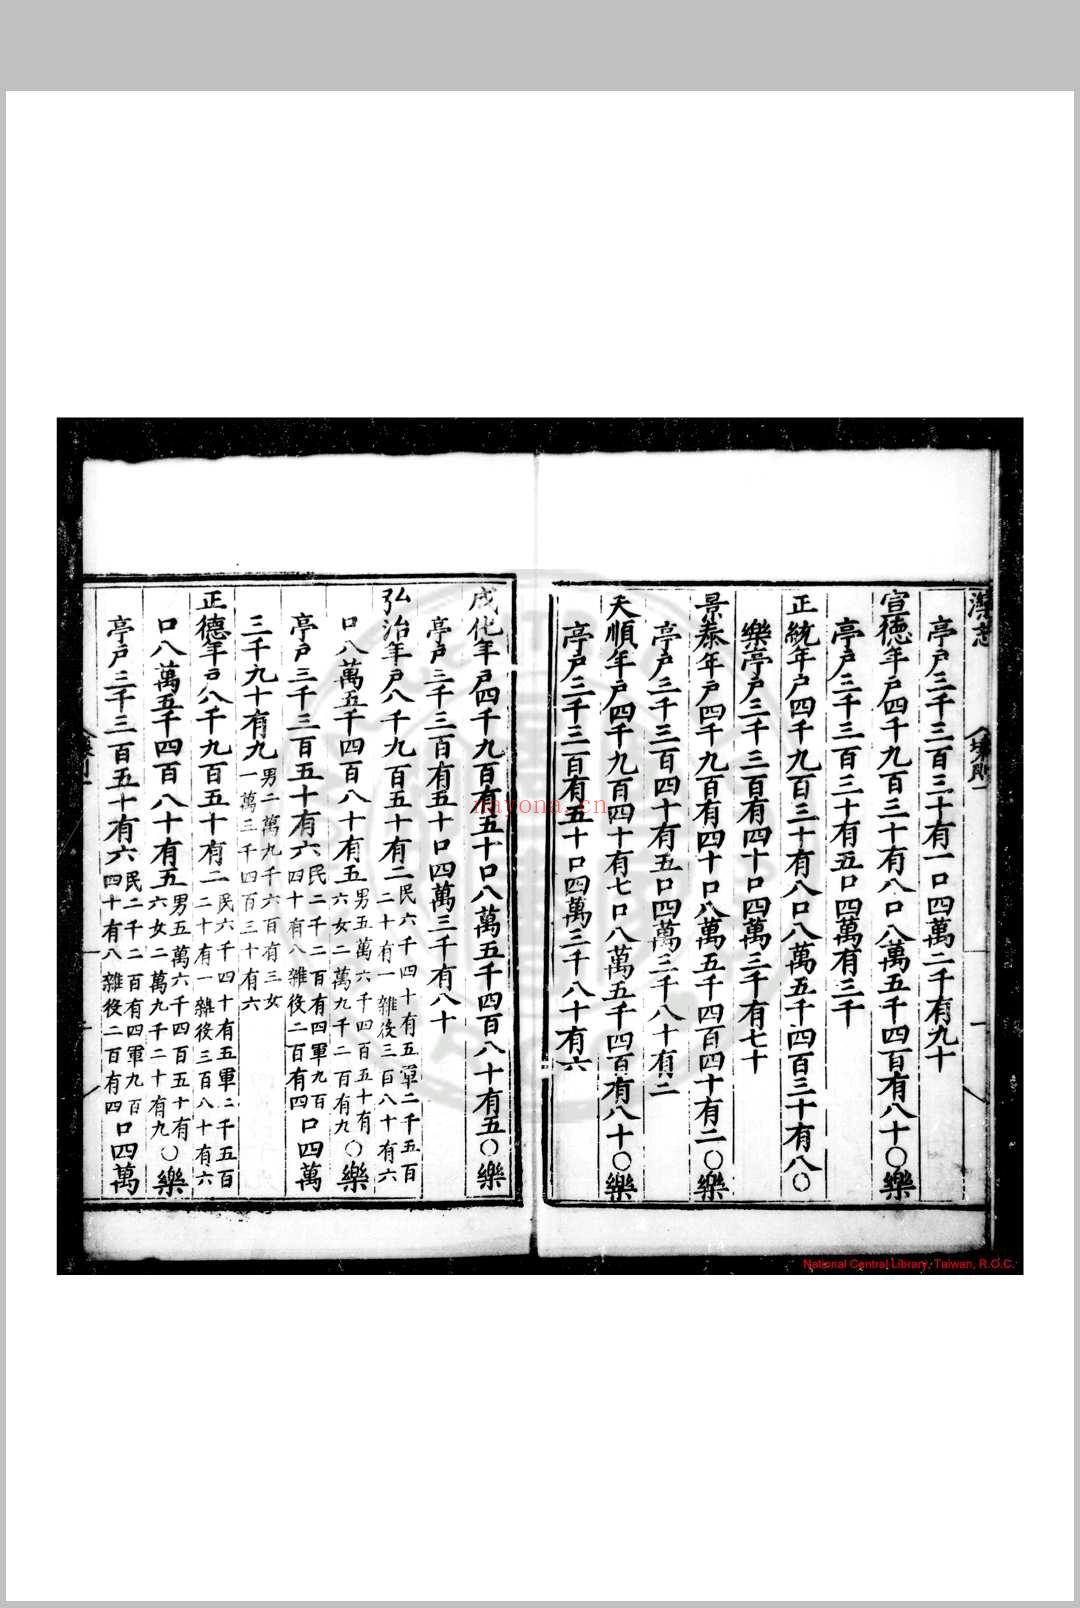 亭戶三千三百三十有一口四萬二千有九十
宣德年戶四千九百三十有八口八萬五千四百有八十○樂
亭戶三千三百三十有五口四萬有三千
正統年戶四千九百三十有八口八萬五千四百三十有八○
樂亭戶三千三百有四十口四萬三千有七十
景泰年戶四千九百有四十口八萬五千四百四十有二○樂
亭戶三千三百四十有五口四萬三千八十有二
天順年戶四千九百四十有七口八萬五千四百有八十○樂
亭戶三千三百有五十口四萬三千八十有六
成化年戶四千九百有五十口八萬五千四百八十有五○樂
亭戶三千三百有五十口四萬三千有八十
弘治年戶八千九百五十有二民六千四十有五軍二千五百二十有一雜役三百八十有六
口八萬五千四百八十有五男五萬六千四百五十有六女二萬九千二百有九○樂
亭戶三千三百五十有六民二千二百有四軍九百四十有八雜役二百有四口四萬
三千九十有九男二萬九千六百有三女一萬三千四百三十有六
正德年戶八千九百五十有二民六千四十有五軍二千五百二十有一雜役三百八十有六
口八萬五千四百八十有五男五萬六千四百五十有六女二萬九千二十有九○樂
亭戶三千三百五十有六民二千二百有四軍九百四十有八雜役二百有四口四萬
nayona.cn
National Central Library, Taiwan, R.O.C.